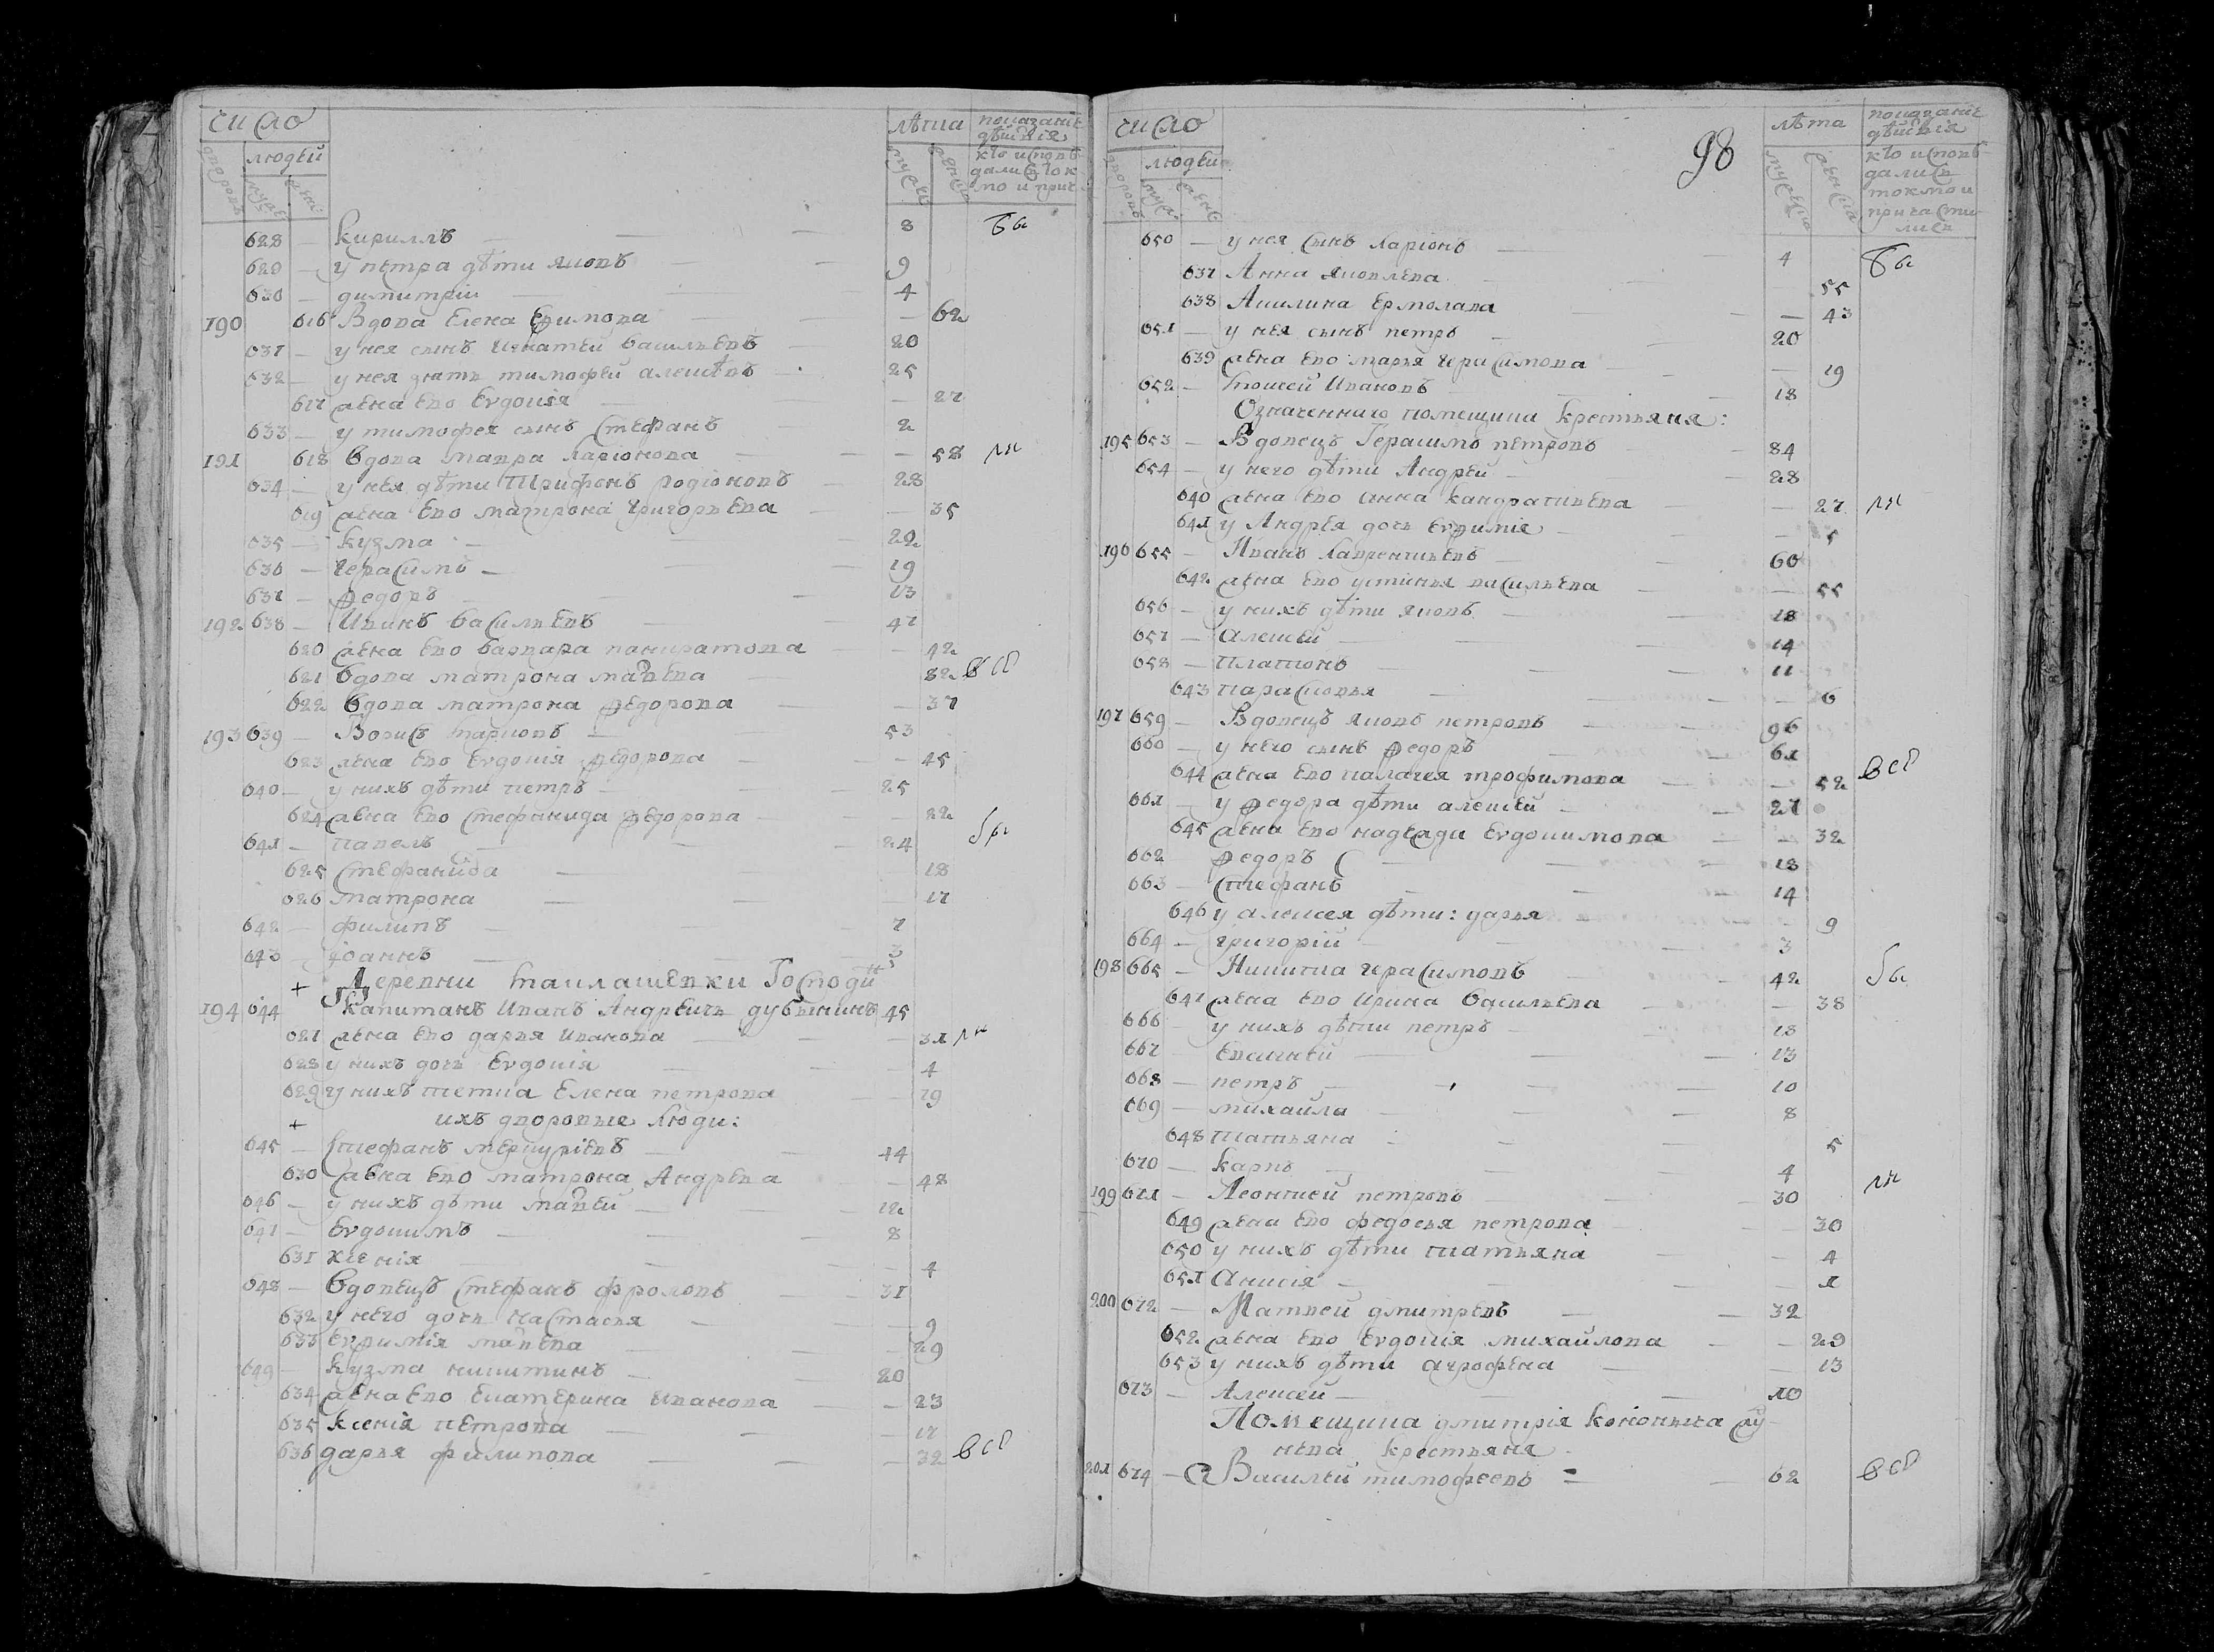 число лѣта показаніе дѣйствія
людей кто исповѣдались токмо и прич
дворовъ муж жен мужеска женска
628 — Кириллъ — 8 бы
629 — у петра дѣти яковъ — 9
630 — димитрій — 4
190 616 Вдова Елена Ефимова — 62
631 — у нея сынъ Игнатей Васильевъ — 20
632 — у нея зять тимофей алексѣевъ — 25
617 жена ево Евдокія — 27
633 — у тимофея сынъ Стефанъ — 2
191 618 Вдова мавра Ларіонова — 58
634 — у нея дѣти Трифонъ родіоновъ — 28
619 жена ево матрона григорьева — 35
635 — кузма — 22
636 — герасимъ — 19
637 — федоръ — 13
192 638 — Иванъ Васильевъ — 47
620 жена ево варвара панкратова — 42
621 вдова матрона матвѣева — 82
622 вдова матрона федорова — 37
193 639 — Борисъ марковъ — 53
623 жена ево Евдокія федорова — 45
640 — у нихъ дѣти петръ — 25
624 жена ево стефанида федорова — 22 бы
641 — павелъ — 24
625 стефанида — 18
626 матрона — 17
642 — филипъ — 7
643 — іоаннъ — 3
+ Деревни Господи
194 644 капитанъ Иванъ Андреичь дубенинъ 45
627 жена ево дарья иванова — 31
628 у нихъ дочь Евдокія — 4
629 у нихъ тетка Елена петрова — 79
+ ихъ дворовые люди:
645 — стефанъ меркуріевъ — 44
630 жена ево матрона Андрева — 48
646 — у нихъ дѣти матвей — 12
647 — Евдокимъ — 8
631 ксенія — 4
648 — вдовецъ стефанъ фроловъ — 31
632 у него дочь настасья — 9
633 Евфимія матвева — 29
649 — кузма никитинъ — 20
634 жена ево Екатерина иванова — 23
635 ксенія петрова — 17
636 дарья филипова — 32
98
число лѣта показаніе дѣйствія
людей кто исповѣдались токмо и причастились
дворовъ муж жен мужеска женска
650 — у нея сынъ Ларіонъ — 4 бы
637 Анна яковлева — 55
638 Акилина Ермолава — 43
651 — у нея сынъ петръ — 20
639 жена ево марья герасимова — 19
652 — моисей Ивановъ — 18
Означеннаго помещика крестьяня:
195 653 — Вдовецъ Герасимъ петровъ — 84
654 — у него дѣти Андрей — 28
640 жена ево анна кандратьева — 27
641 у Андрея дочь Евфиміе — 5
196 655 — Иванъ Лаврентьевъ — 60
642 жена ево устинья васильева — 55
656 — у нихъ дѣти яковъ — 18
657 — алексей — 14
658 — платонъ — 11
643 парасковья — 6
197 659 — Вдовецъ яковъ петровъ — 96
660 — у него сынъ федоръ — 61
644 жена ево палагея трофимова — 52
661 — у федора дѣти алексей — 27
645 жена ево надежда Евдокимова — 32
662 федоръ — 18
663 — стефанъ — 14
646 у алексея дѣти: дарья — 9
664 — григорій — 3
198 665 — Никита герасимовъ — 42 бы
647 жена ево ирина васильева — 38
666 у нихъ дѣти петръ — 18
667 — Евсигней — 13
668 — петръ — 10
669 — михайла — 8
648 татьяна — 5
670 — карпъ — 4
199 671 — Леонтией петровъ — 30
649 жена ево федосья петрова — 30
650 у нихъ дѣти татьяна — 4
651 анисія — 1
200 672 — Матвей дмитревъ — 32
652 жена ево Евдокія михайлова — 29
653 у нихъ дѣти агрофена — 13
673 — Алексей — 10
Помещика дмитрія
крестьяня
201 674 — Василей тимофеевъ — 62